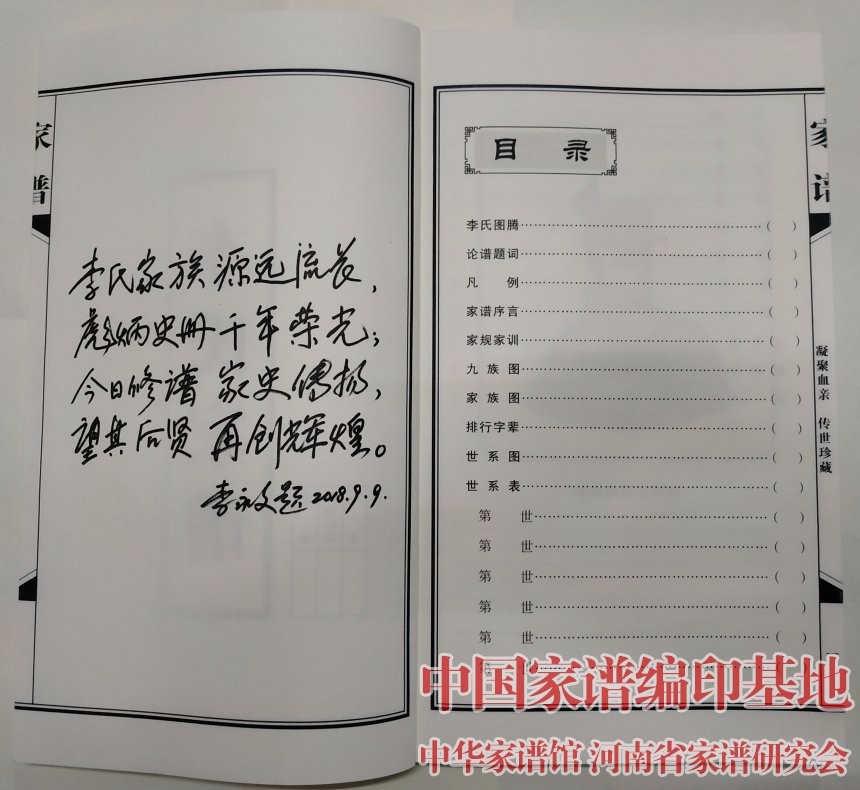 家谱
李氏家族源远流长,
彪炳史册千年荣光;
今日修谱 家史传扬,
望其后贤 再创辉煌。
李永文题2018.9.9.
目 录
李氏图腾……………………………( )
论谱题词……………………………( )
凡 例……………………………( )
家谱序言……………………………( )
家规家训……………………………( )
九 族 图……………………………( )
家 族 图……………………………( )
排行字辈……………………………( )
世 系 图……………………………( )
世 系 表……………………………( )
第 世……………………………( )
第 世……………………………( )
第 世……………………………( )
第 世……………………………( )
第 世……………………………( )
家谱
凝聚血亲 传世珍藏
中国家谱编印基地
中华家谱馆 河南省家谱研究会